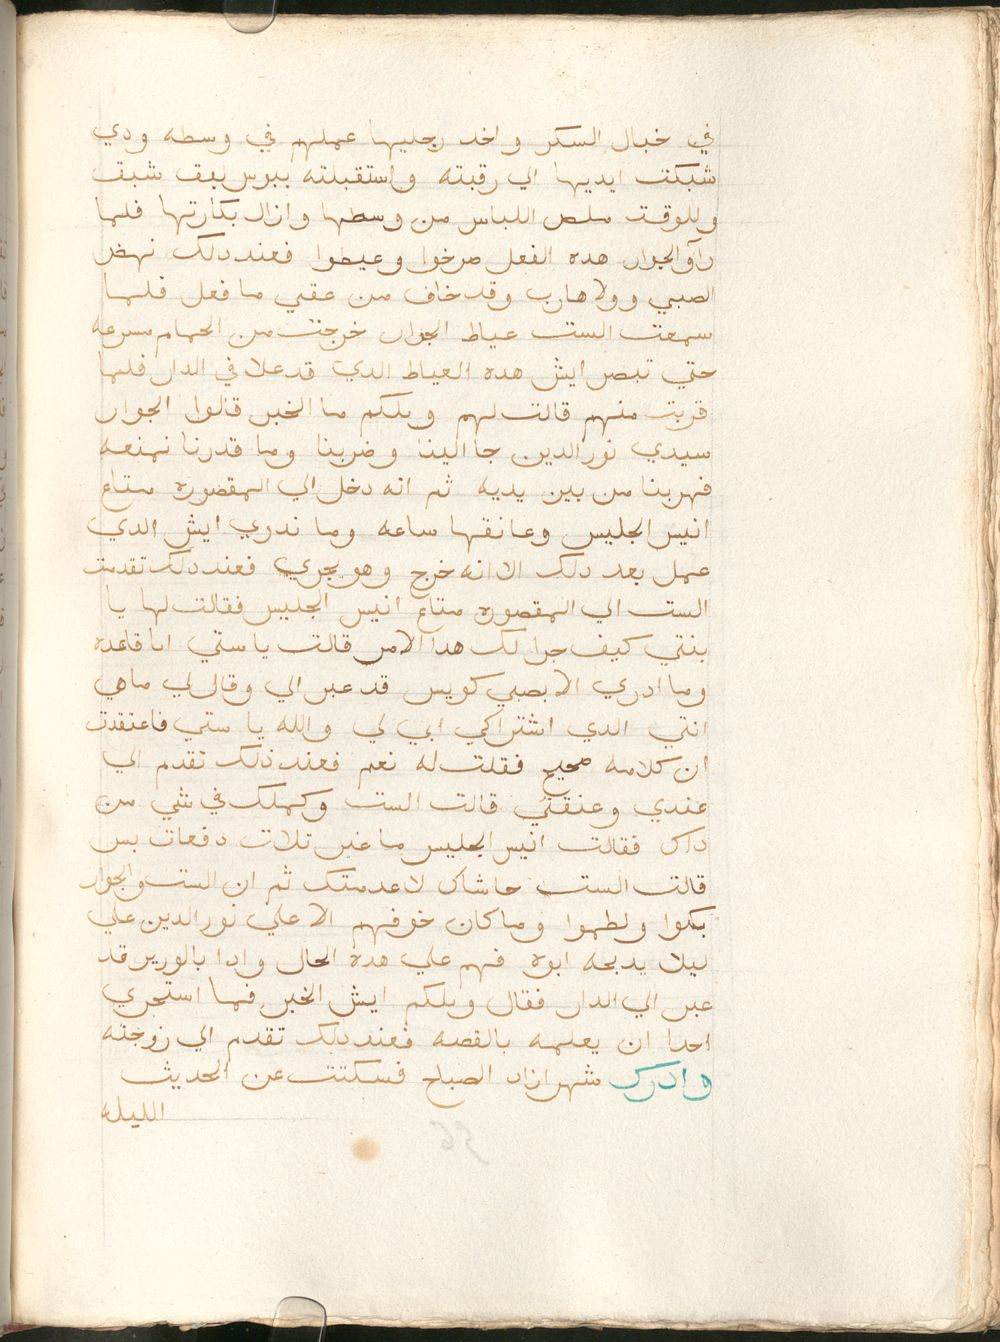 في خبال السكر واخد رجليها عملهم في وسطه ودي
شبكت ايديها الي رقبته واستقبلته ببوس بعف شبق
وللوقت ملص اللباس من وسطها وازال بكارتها فلما
راو الجوار هده الفعل صرخوا وعيطوا فعند دلك نهض
الصبي وولا هارب وقد خاف من عقبي ما فعل فلما
سمعت الست عياط الجوار خرجت من الحمام مسرعه
حتي تبصر ايش هده العياط الدي قد علا في الدار فلما
قربت منهم قالت لهم ويلكم ما الخبر قالوا الجوار
سيدي نور الدين جا الينا وضربنا وما قدرنا نمنعه
فهربنا من بين يديه ثم انه دخل الي المقصوره متاع
انيس الجليس وعانقها ساعه وما ندري ايش الدي
عمل بعد دلك الا انه خرج وهو يجري فعند دلك تقدمت
الست الي المقصوره متاع انيس الجليس فقالت لها يا
بنتي كيف جرا لك هدا الامر قالت يا ستي انا قاعده
وما ادري الا بصبي كويس قد عبر الي وقال لي ما هي
انتي الدي اشتراكي ابي لي والله يا ستي فاعتقدت
ان كلامه صحيح فقلت له نعم فعند ذلك تقدم الي
عندي وعنقني قالت الست وكهلك في شي من
داك فقالت انيس الجليس ما غير تلات دفعات بس
قالت الست حاشاك لا عدمتك ثم ان الست والجوار
بكوا ولطموا وما كان خوفهم الا علي نور الدين علي
ليلا يدبحه ابوه فهم علي هده الحال وادا بالوزير قد
عبر الي الدار فقال ويلكم ايش الخبر فما استجري
احدا ان يعلمه بالقصه فعند دلك تقدم الي زوجته
وادرك شهرازاد الصباح فسكتت عن الحديث
الليله
56